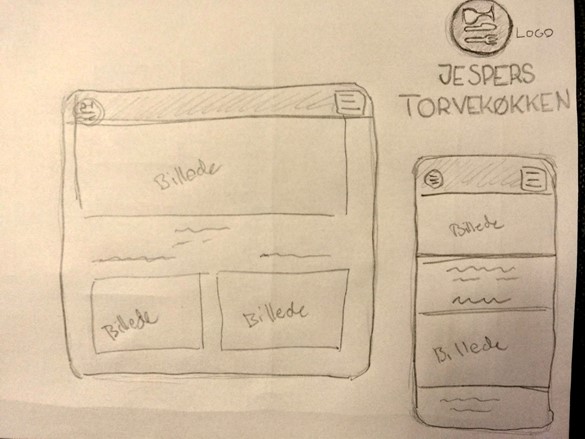 LOGO
JESPERS
TORVEKØKKEN
Billede
Billede
Billede
Billede
Billede